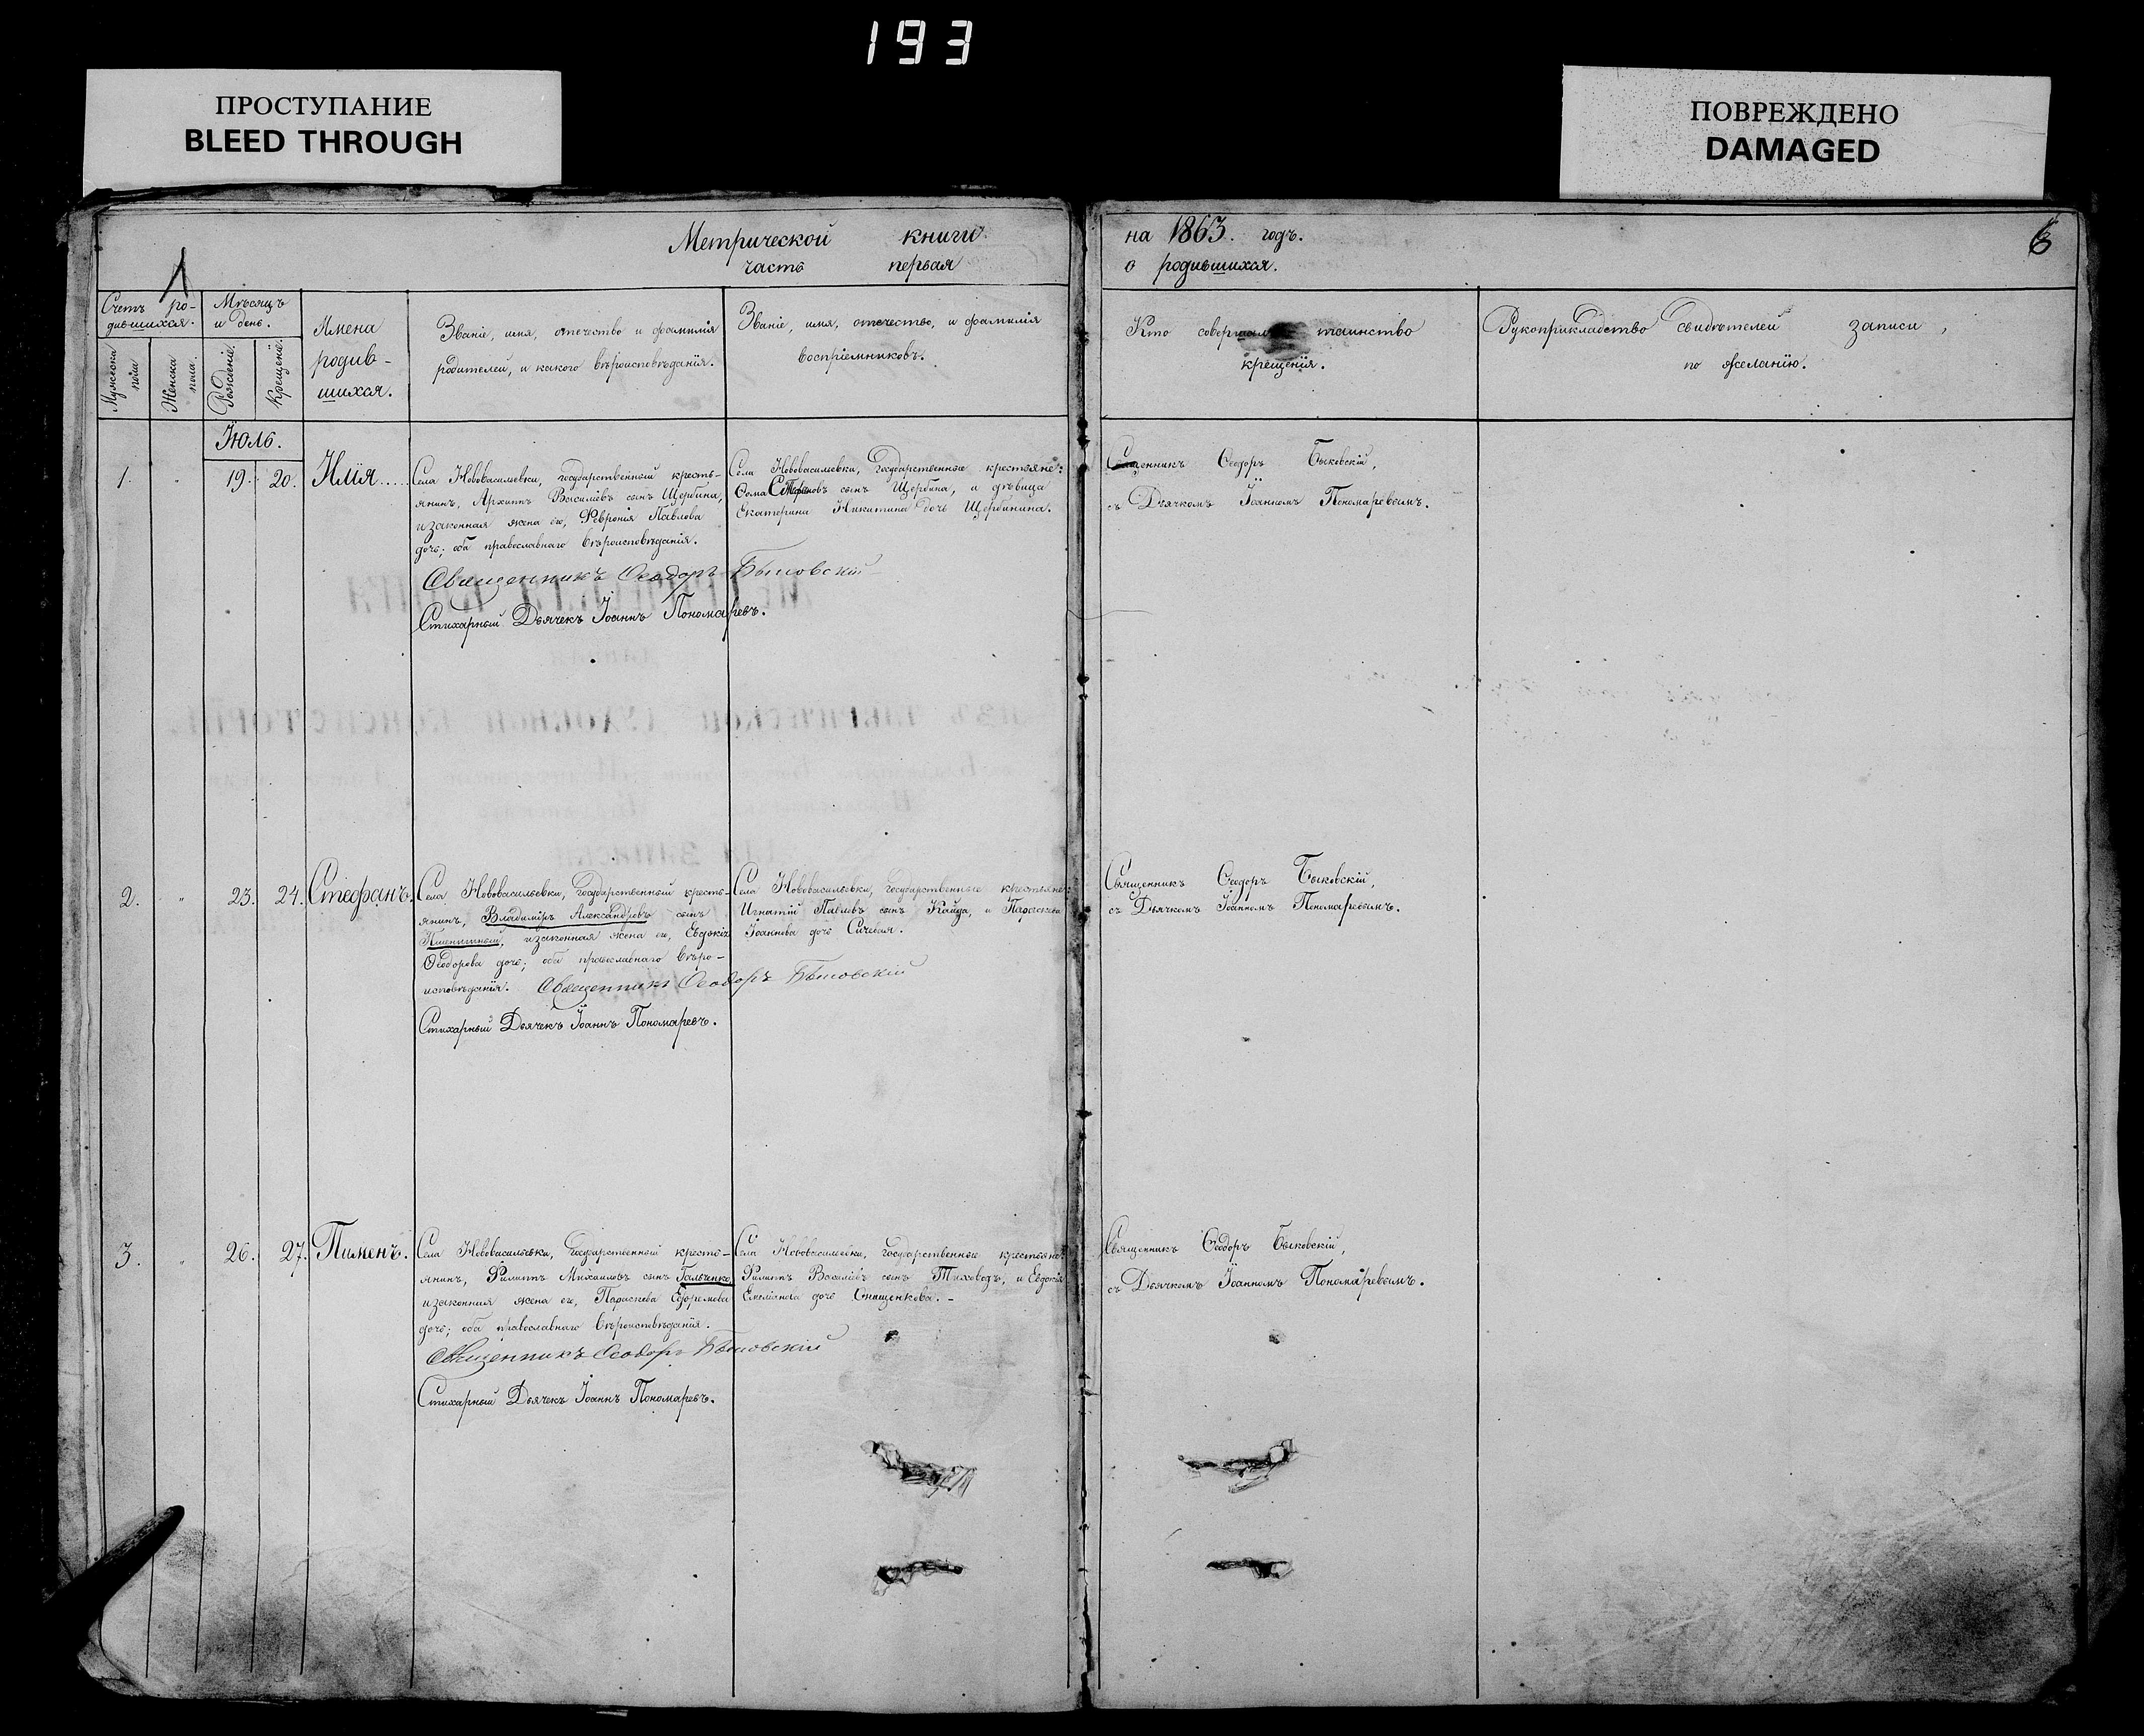 193
ПРОСТУПАНИЕ
BLEED THROUGH
ПОВРЕЖДЕНО
DAMAGED
Метрической книги
часть первая
на 1863. годъ.
о родившихся.
1
Счетъ ро-
дившихся.
Мужеска пола
Женска пола.
Мѣсяцъ
и день.
Рожденіе.
Крещеніе.
Имена
родив-
шихся.
Званіе, имя, отечество и фамилія
родителей, и какого вѣроисповѣданія.
Званіе, имя, отечество, и фамилія
воспріемниковъ.
Кто совершалъ таинство
крещенія.
Рукоприкладство свидѣтелей записи,
по желанію.
Іюль.
1. " 19. 20. Илія.....
Села Нововасильевки, государственный кресть-
янинъ, Архиппъ Василіевъ сынъ Щербина,
и законная жена его, Февронія Павлова
дочь; оба православнаго вѣроисповѣданія.
Священникъ Ѳеодоръ Быковскій
Стихарный Дьячекъ Іоаннъ Пономаревъ.
Села Нововасильевки, Государственные крестьяне:
Ѳома Стефановъ сынъ Щербина, и дѣвица
Екатерина Никитина дочь Щербинина.
Священникъ Ѳеодоръ Быковскій,
съ Дьячкомъ Іоанномъ Пономаревымъ.
2. " 23. 24. Стефанъ.
Села Нововасильевки, Государственный кресть-
янинъ, Владиміръ Александровъ сынъ
Пшеничный, и законная жена его, Евдокія
Ѳеодорова дочь; оба православнаго вѣро-
исповѣданія. Священникъ Ѳеодоръ Быковскій
Стихарный Дьячекъ Іоаннъ Пономаревъ.
Села Нововасильевки, Государственные крестьяне:
Игнатій Павловъ сынъ Кайда, и Параскева
Іоаннова дочь Сичевая.
Священникъ Ѳеодоръ Быковскій,
съ Дьячкомъ Іоанномъ Пономаревымъ.
3. " 26. 27. Пименъ.
Села Нововасильевки, Государственный кресть-
янинъ, Филиппъ Михаиловъ сынъ Гальченко,
и законная жена его, Параскева Ефремова
дочь; оба православнаго вѣроисповѣданія.
Священникъ Ѳеодоръ Быковскій
Стихарный Дьячекъ Іоаннъ Пономаревъ.
Села Нововасильевки, государственные крестьяне:
Филиппъ Василіевъ сынъ Тиховодъ, и Евдокія
Емеліанова дочь Онищенкова.
Священникъ Ѳеодоръ Быковскій,
съ Дьячкомъ Іоанномъ Пономаревымъ.